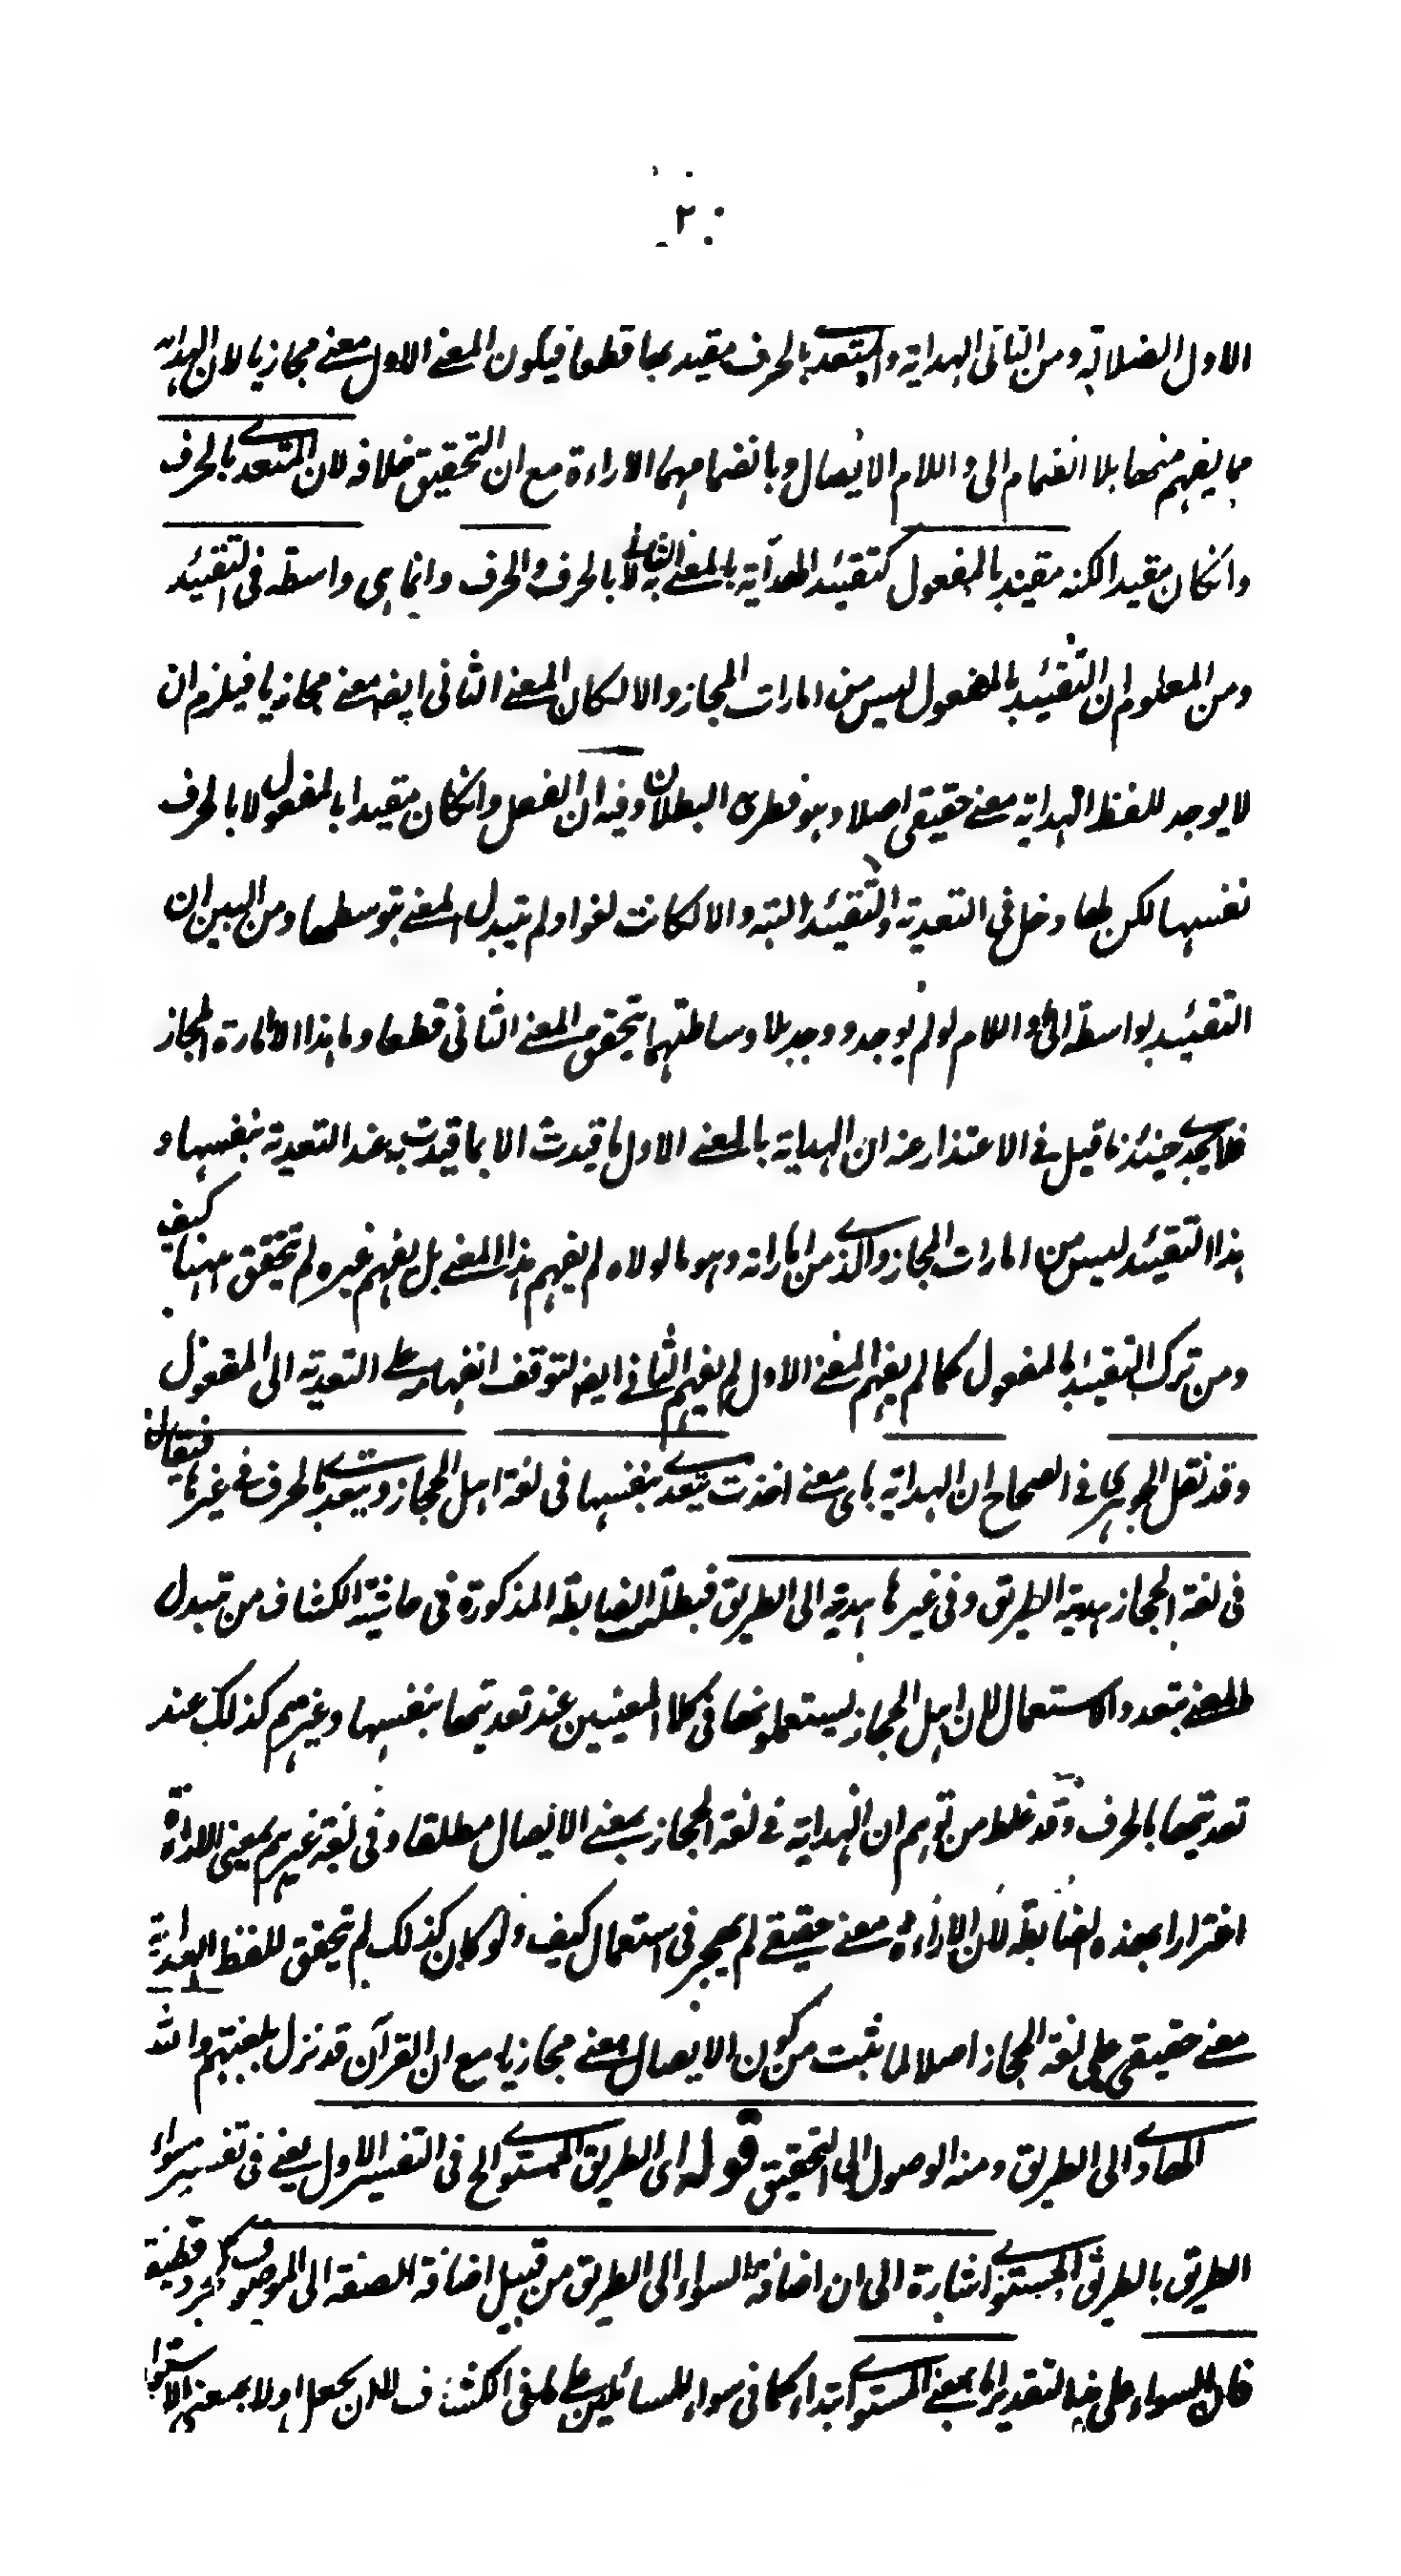 ٢٠
الاول الضلالة ومن الثانى الهداية والمتعدى بالحرف مقيد بها قطعا فيكون المعنے الاول معنے مجازيا لان الهداية
ما يفهم منها بلا انضمام الى واللام الايصال وبانضمامهما الاراءة مع ان التحقيق خلافه لان المتعدے بالحرف
وانكان مقيدا لكنه مقيد بالمفعول كتقييد الهداية بالمعنے الثانے به لا بالحرف والحرف وانما هى واسطة فى التقييد
ومن المعلوم ان التقييد بالمفعول ليس من امارات المجاز والا لكان المعنے الثانى ايضا معنے مجازيا فيلزم ان
لا يوجد للفظ الهداية معنے حقيقى اصلا وهو فطرى البطلان وفيه ان الفعل وانكان مقيدا بالمفعول لا بالحرف
نفسها لكن لها دخل فى التعدية والتقييد البتة والا لكانت لغوا ولم يتبدل المعنے بتوسطها ومن البين ان
التقييد بواسطة الى واللام لو لم يوجد ووجد بلا وساطتهما يتحقق المعنے الثانى قطعا وما هذا الا امارة المجاز
فلا يجدے حينئذ ما قيل فے الاعتذار عنه ان الهداية بالمعنے الاول ما قيدت الا بما قيدت به عند التعدية بنفسها و
هذا التقييد ليس من امارات المجاز والذے من اماراته وهو ما لولاه لم يفهم هذا المعنے بل يفهم غيره لم يتحقق ههنا كيف
ومن ترك التقييد بالمفعول كما لم يفهم المعنے الاول لم يفهم الثانے ايضا لتوقف انفهامه علے التعدية الى المفعول
وقد نقل الجوهرى فے الصحاح ان الهداية باى معنے اخذت يتعدے بنفسها فى لغة اهل الحجاز ويتعدے بالحرف فے غيرها فيقال
فى لغة الحجاز هديته الطريق وفى غيرها هديته الى الطريق فبطلت الضابطة المذكورة فى حاشية الكشاف من تبدل
المعنے بتعدد الاستعمال لان اهل الحجاز يستعملونها فى كلا المعنيين عند تعديتها بنفسها وغيرهم كذلك عند
تعديتها بالحرف وقد غلط من توهم ان الهداية فے لغة الحجاز بمعنے الايصال مطلقا وفى لغة غيرهم بمعنى الاراءة
اغترارا بهذه الضابطة لان الاراءة معنے حقيقے لم يهجر فى استعمال كيف ولو كان كذلك لم يتحقق للفظ الهداية
معنے حقيقى على لغة الحجاز اصلا لما ثبت من كون الايصال معنے مجازيا مع ان القرآن قد نزل بلغتهم والله
الهادے الى الطريق ومنه الوصول الى التحقيق قوله اى الطريق المستوے الخ فى التفسير الاول يعنے فى تفسير سواء
الطريق بالطريق المستوے اشارة الى ان اضافة السواء الى الطريق من قبيل اضافة الصفة الى الموصوف كجرد قطيفة
فان السواء على هذا التقدير اما بمعنے المستوے ابتداء كما فى سواء للسائلين علے ما فى الكشاف لا لان يجعل اولا بمعنى الاستواء